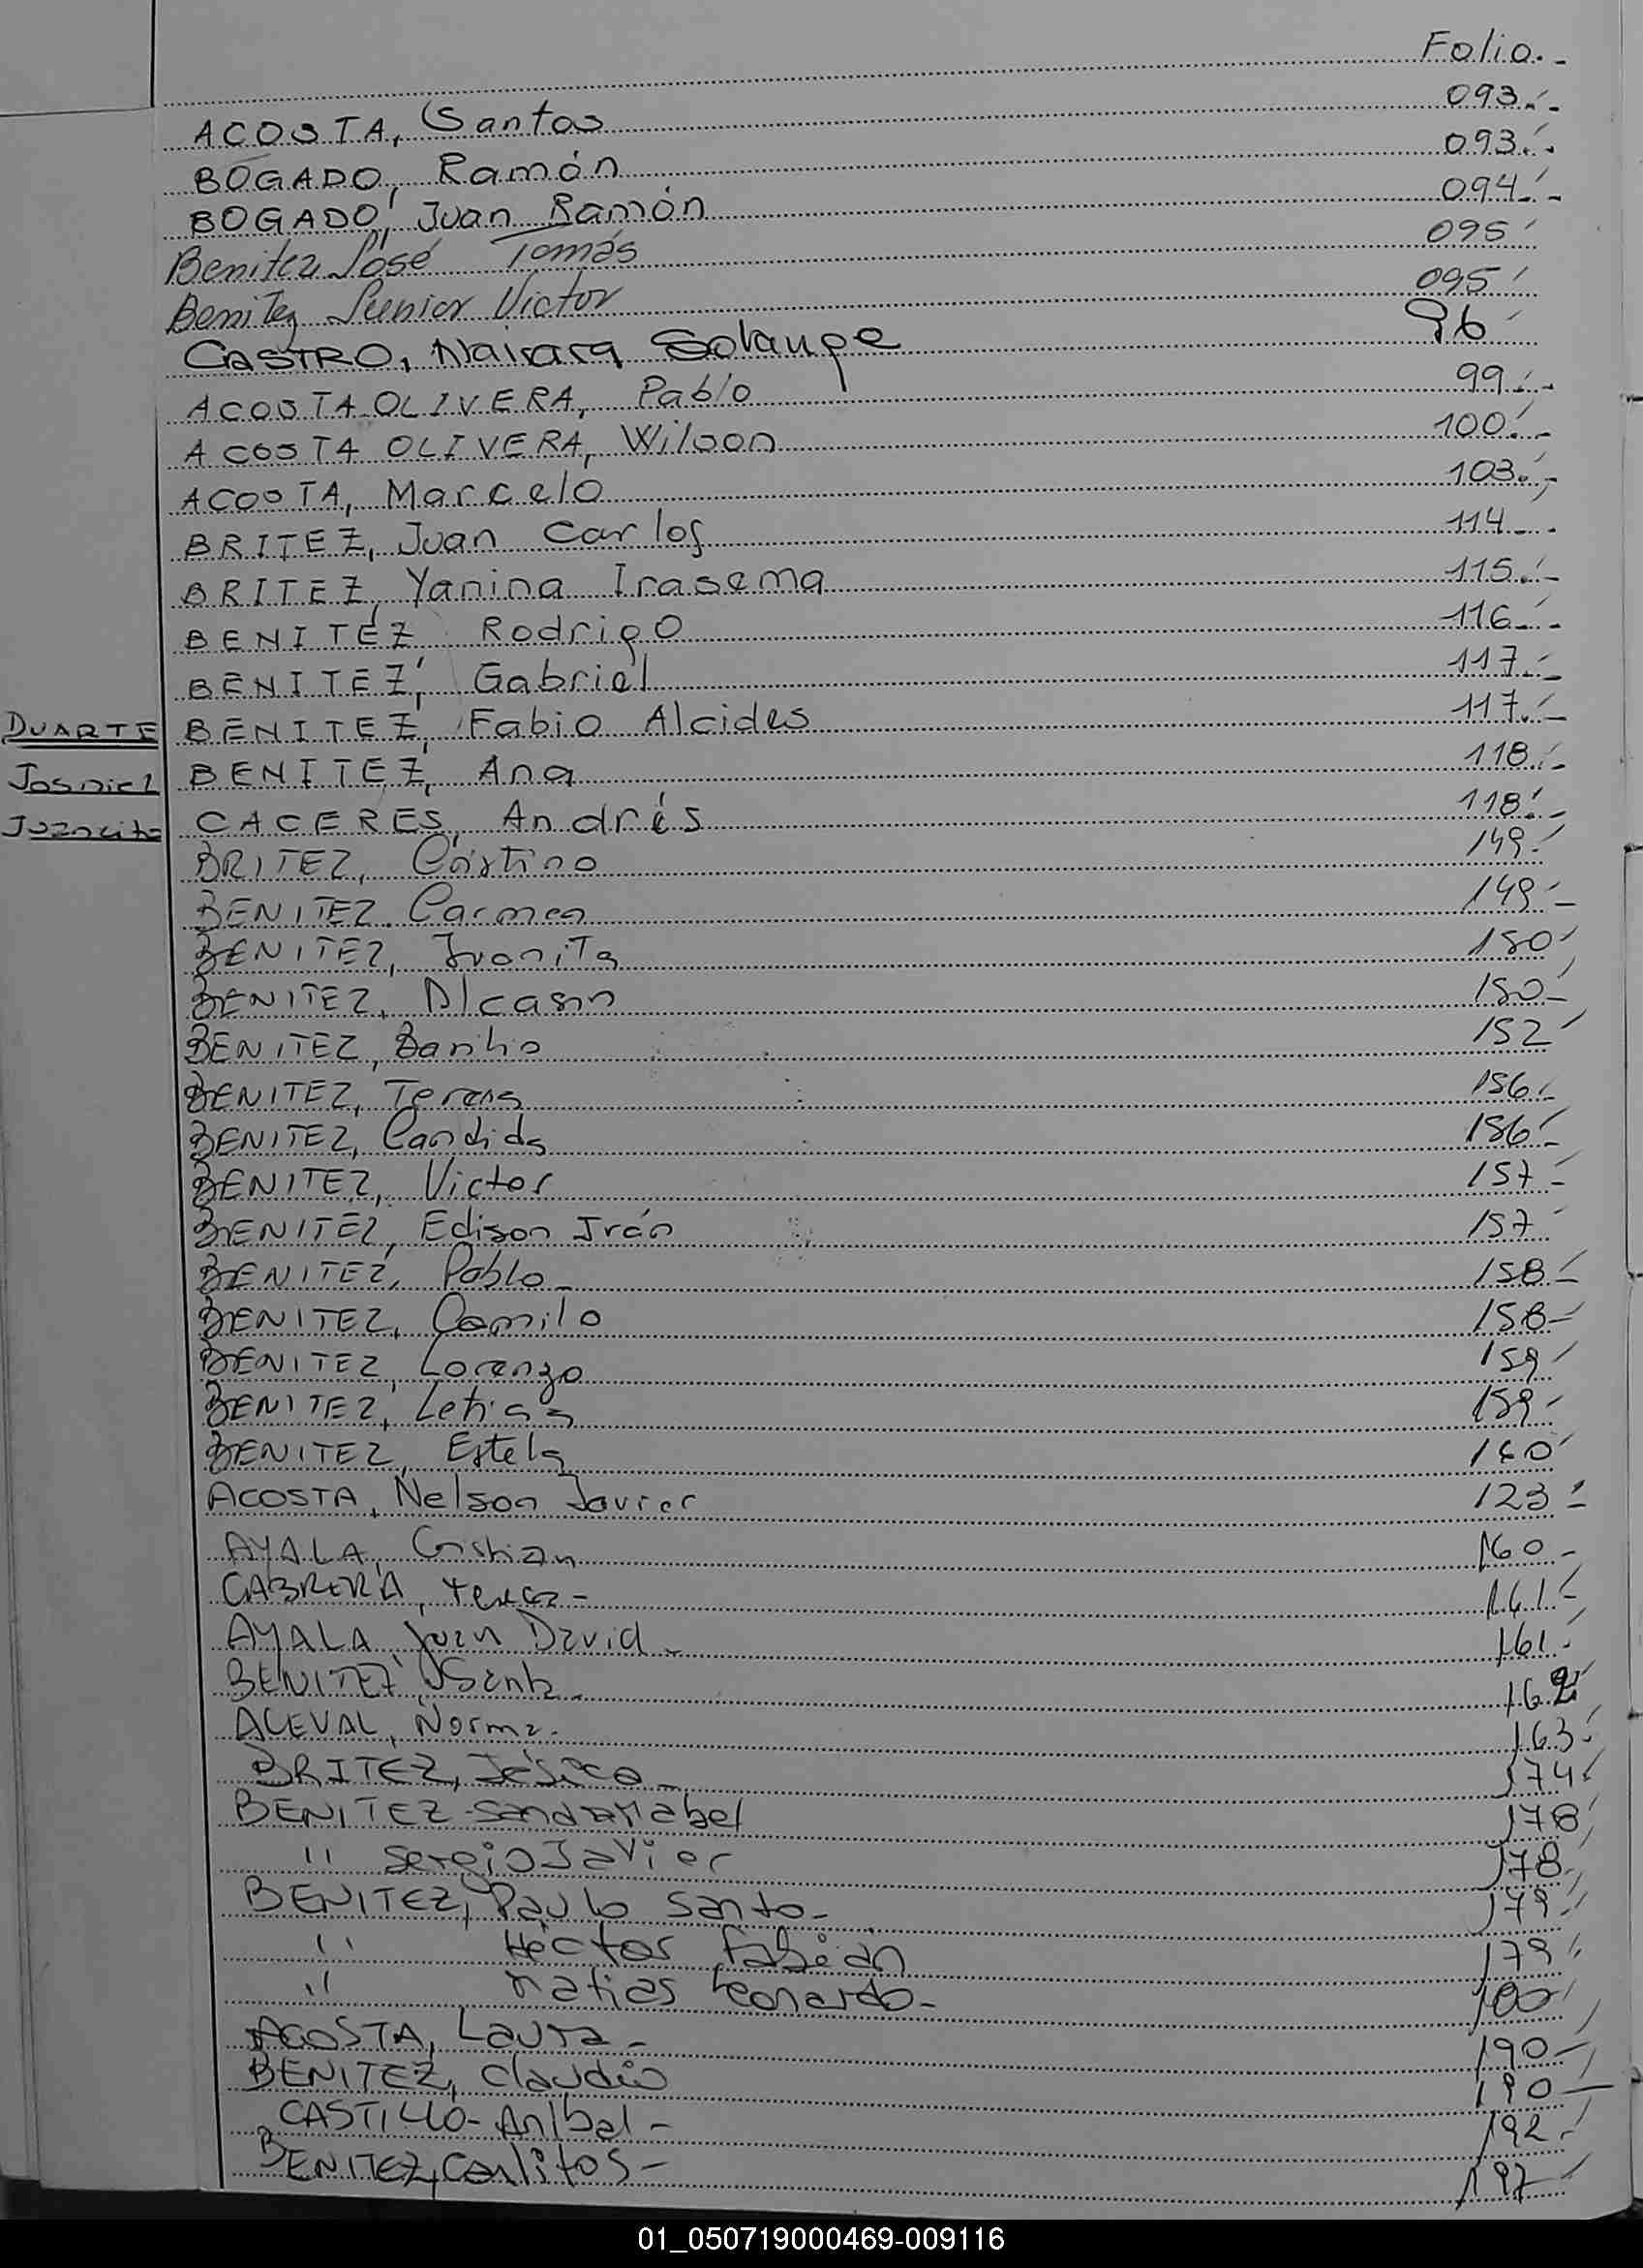 Folio.-
ACOSTA, Santos 093.-
BOGADO, Ramón 093.-
BOGADO, Juan Ramón 094.-
Benitez José Tomás 095
Benitez Junior Victor 095
CASTRO, Naiara Solange 96
ACOSTA OLIVERA, Pablo 99.-
ACOSTA OLIVERA, Wilson 100.-
ACOSTA, Marcelo 103.-
BRITEZ, Juan Carlos 114.-
BRITEZ, Yanina Irasema 115.-
BENITEZ, Rodrigo 116.-
BENITEZ, Gabriel 117.-
DUARTE
BENITEZ, Fabio Alcides 117.-
Josniel
BENITEZ, Ana 118.-
CACERES, Andrés 118.-
BRITEZ, 149-
BENITEZ, Carmen 149-
BENITEZ, Juanita 150
BENITEZ, 150-
BENITEZ, 152
BENITEZ, Teresa 156-
BENITEZ, Candida 156-
BENITEZ, Victor 157-
BENITEZ, Edison Iván 157
BENITEZ, Pablo- 158-
BENITEZ, Camilo 158-
BENITEZ, Lorenzo 159
BENITEZ, Leticia 159-
BENITEZ, Estela 160
ACOSTA, Nelson Javier 123-
AYALA, Cristian 160-
CABRERA, Teresa- 161-
AYALA, Juan David- 161-
BENITEZ, Santa- 162
ACEVAL, Norma- 163-
BRITEZ, Jésica- 174
BENITEZ Sandra Mabel 178
" Sergio Javier 178
BENITEZ, Paulo Santo- 179
" Héctor Fabián 179
" Matias Leonardo- 180
ACOSTA, Laura- 190-
BENITEZ, Claudio 190-
CASTILLO- Anibal- 192-
BENITEZ, Carlitos- 197
01_050719000469-009116